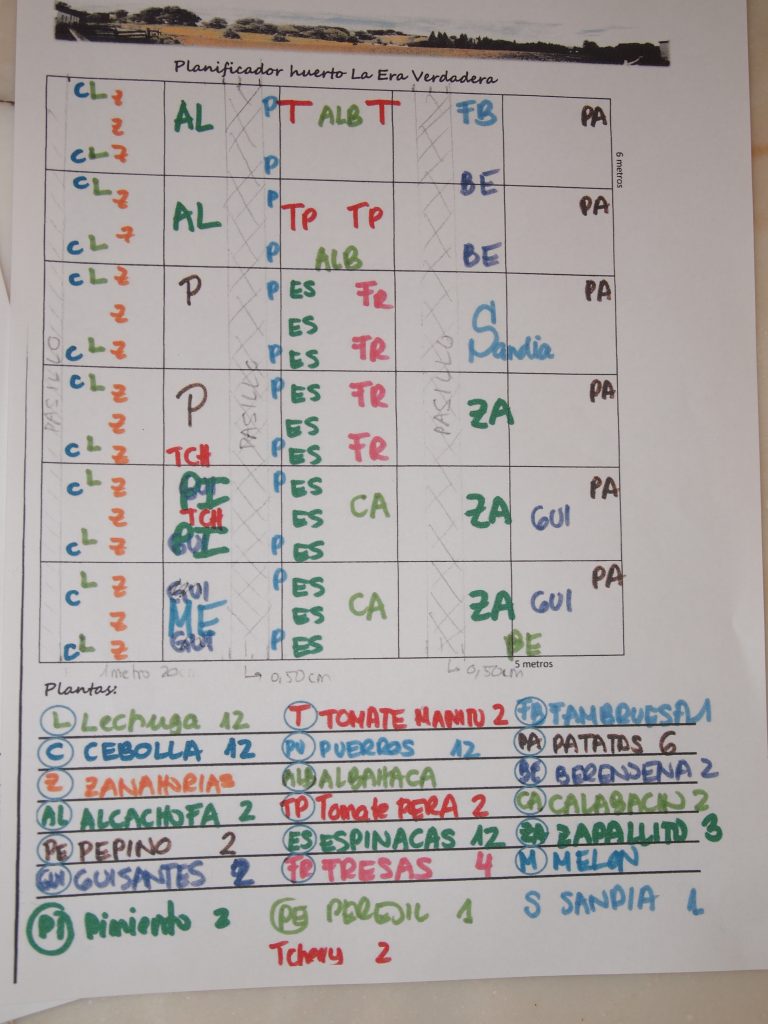 Planificador huerto La Era Verdadera
C L Z AL P T ALB T FB PA
Z
C L Z P
6 metros
C L Z AL P TP TP BE PA
C L Z P ALB BE
C L Z P P ES FR S PA
Z ES Sandia
C L Z P ES FR
PASILLO PASILLO PASILLO
C L Z P P ES FR ZA PA
Z ES
C L Z TCH P ES FR
C L Z PI P ES CA ZA PA
Z TCH ES GUI
C L Z PI P ES
C L Z GUI P ES CA ZA PA
Z ME ES GUI
C L Z GUI P ES PE
1 metro 20 0,50 cm 0,50 cm 5 metros
Plantas:
L Lechuga 12 T TOMATE MANITU 2 FB FAMBRUESA 1
C CEBOLLA 12 PU PUERROS 12 PA PATATAS 6
Z ZANAHORIAS ALB ALBAHACA BE BERENGENA 2
AL ALCACHOFA 2 TP Tomate PERA 2 CA CALABACIN 2
PE PEPINO 2 ES ESPINACAS 12 ZA ZAPALLITO 3
GUI GUISANTES 2 FR FRESAS 4 M MELON
PI Pimiento 2 PE PEREJIL 1 S SANDIA 1
Tcherry 2